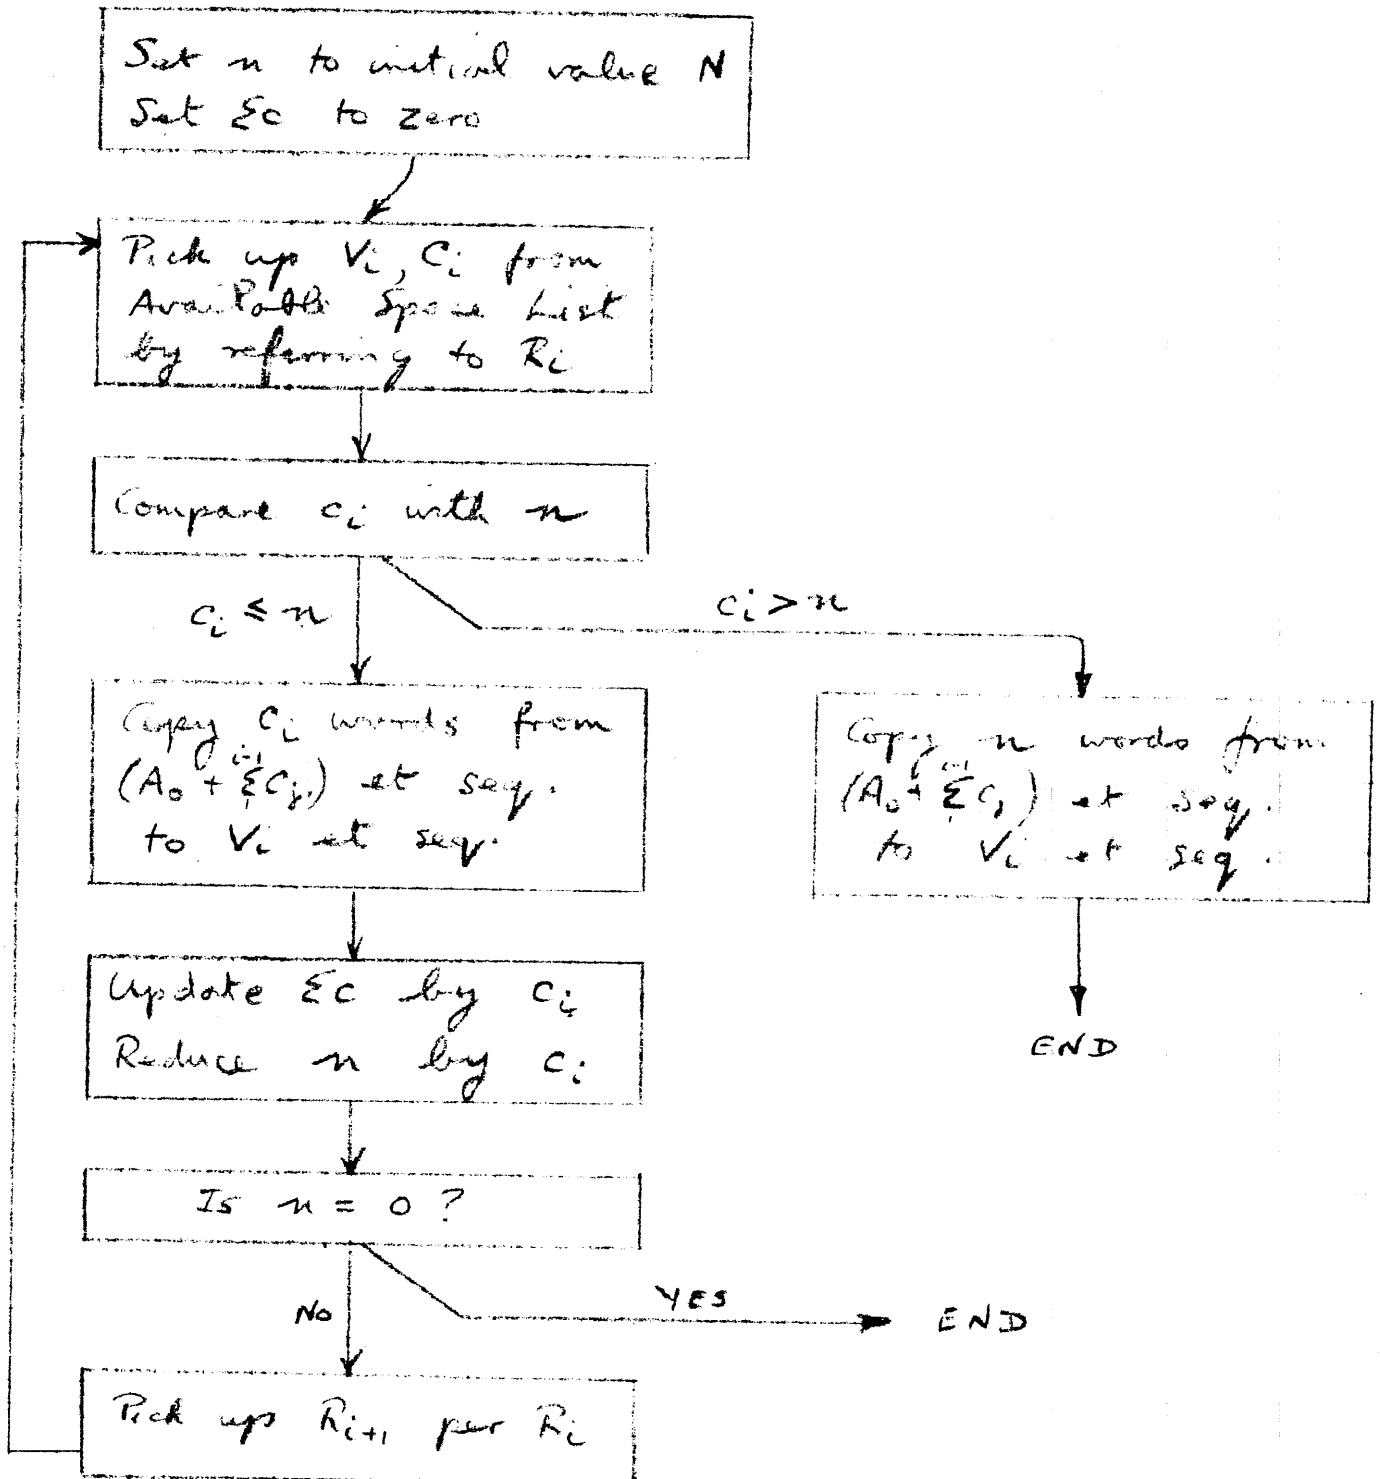 Set n to initial value N
Set Σc to zero
Pick up Vi, Ci from
Available Space List
by referring to Ri
Compare ci with n
ci ≤ n
ci > n
Copy Ci words from
(A₀ + Σ₁ⁱ⁻¹Cj) et seq.
to Vi et seq.
Copy n words from
(A₀ + Σ₁ⁱ⁻¹Cj) et seq.
to Vi et seq.
Update Σc by ci
Reduce n by ci
END
Is n = 0 ?
NO
YES
END
Pick up Ri+1 per Ri